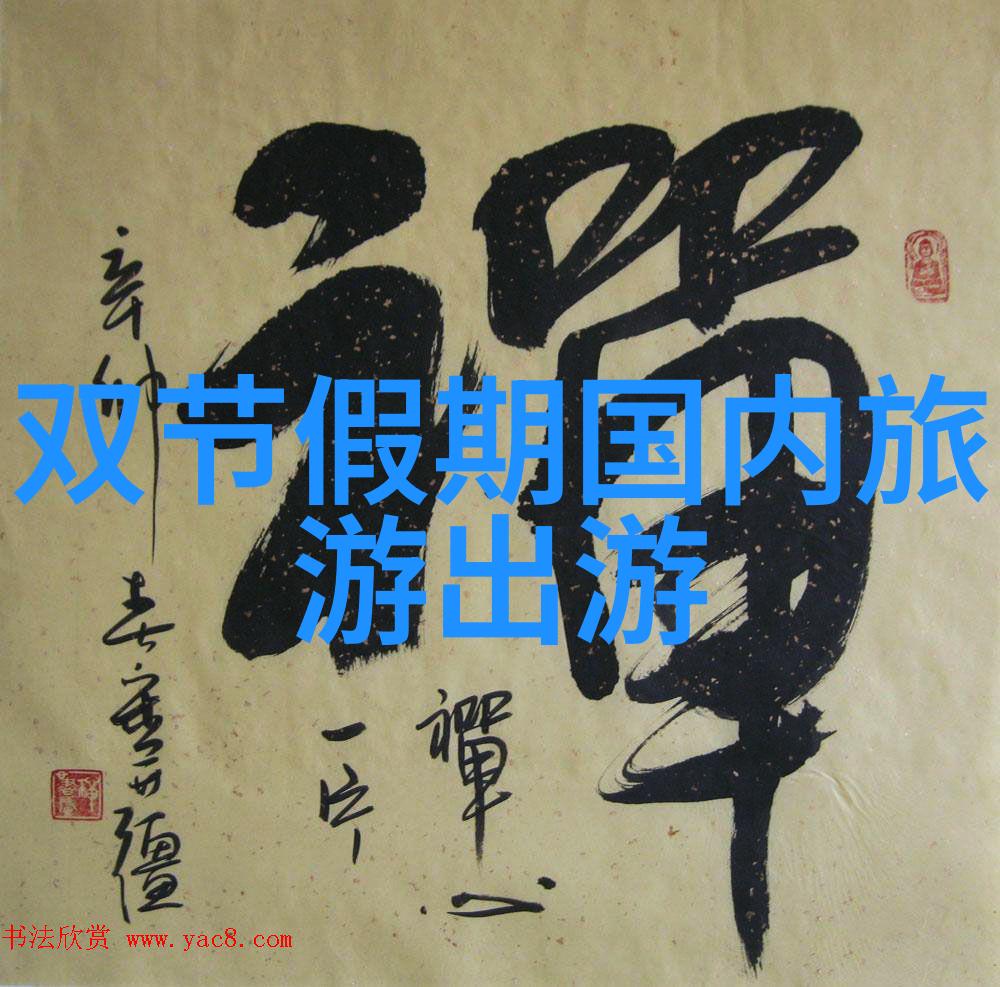 禪
双节假期国内旅
游出游
禪心
一片
辛卯
书法欣赏 www.yac8.com